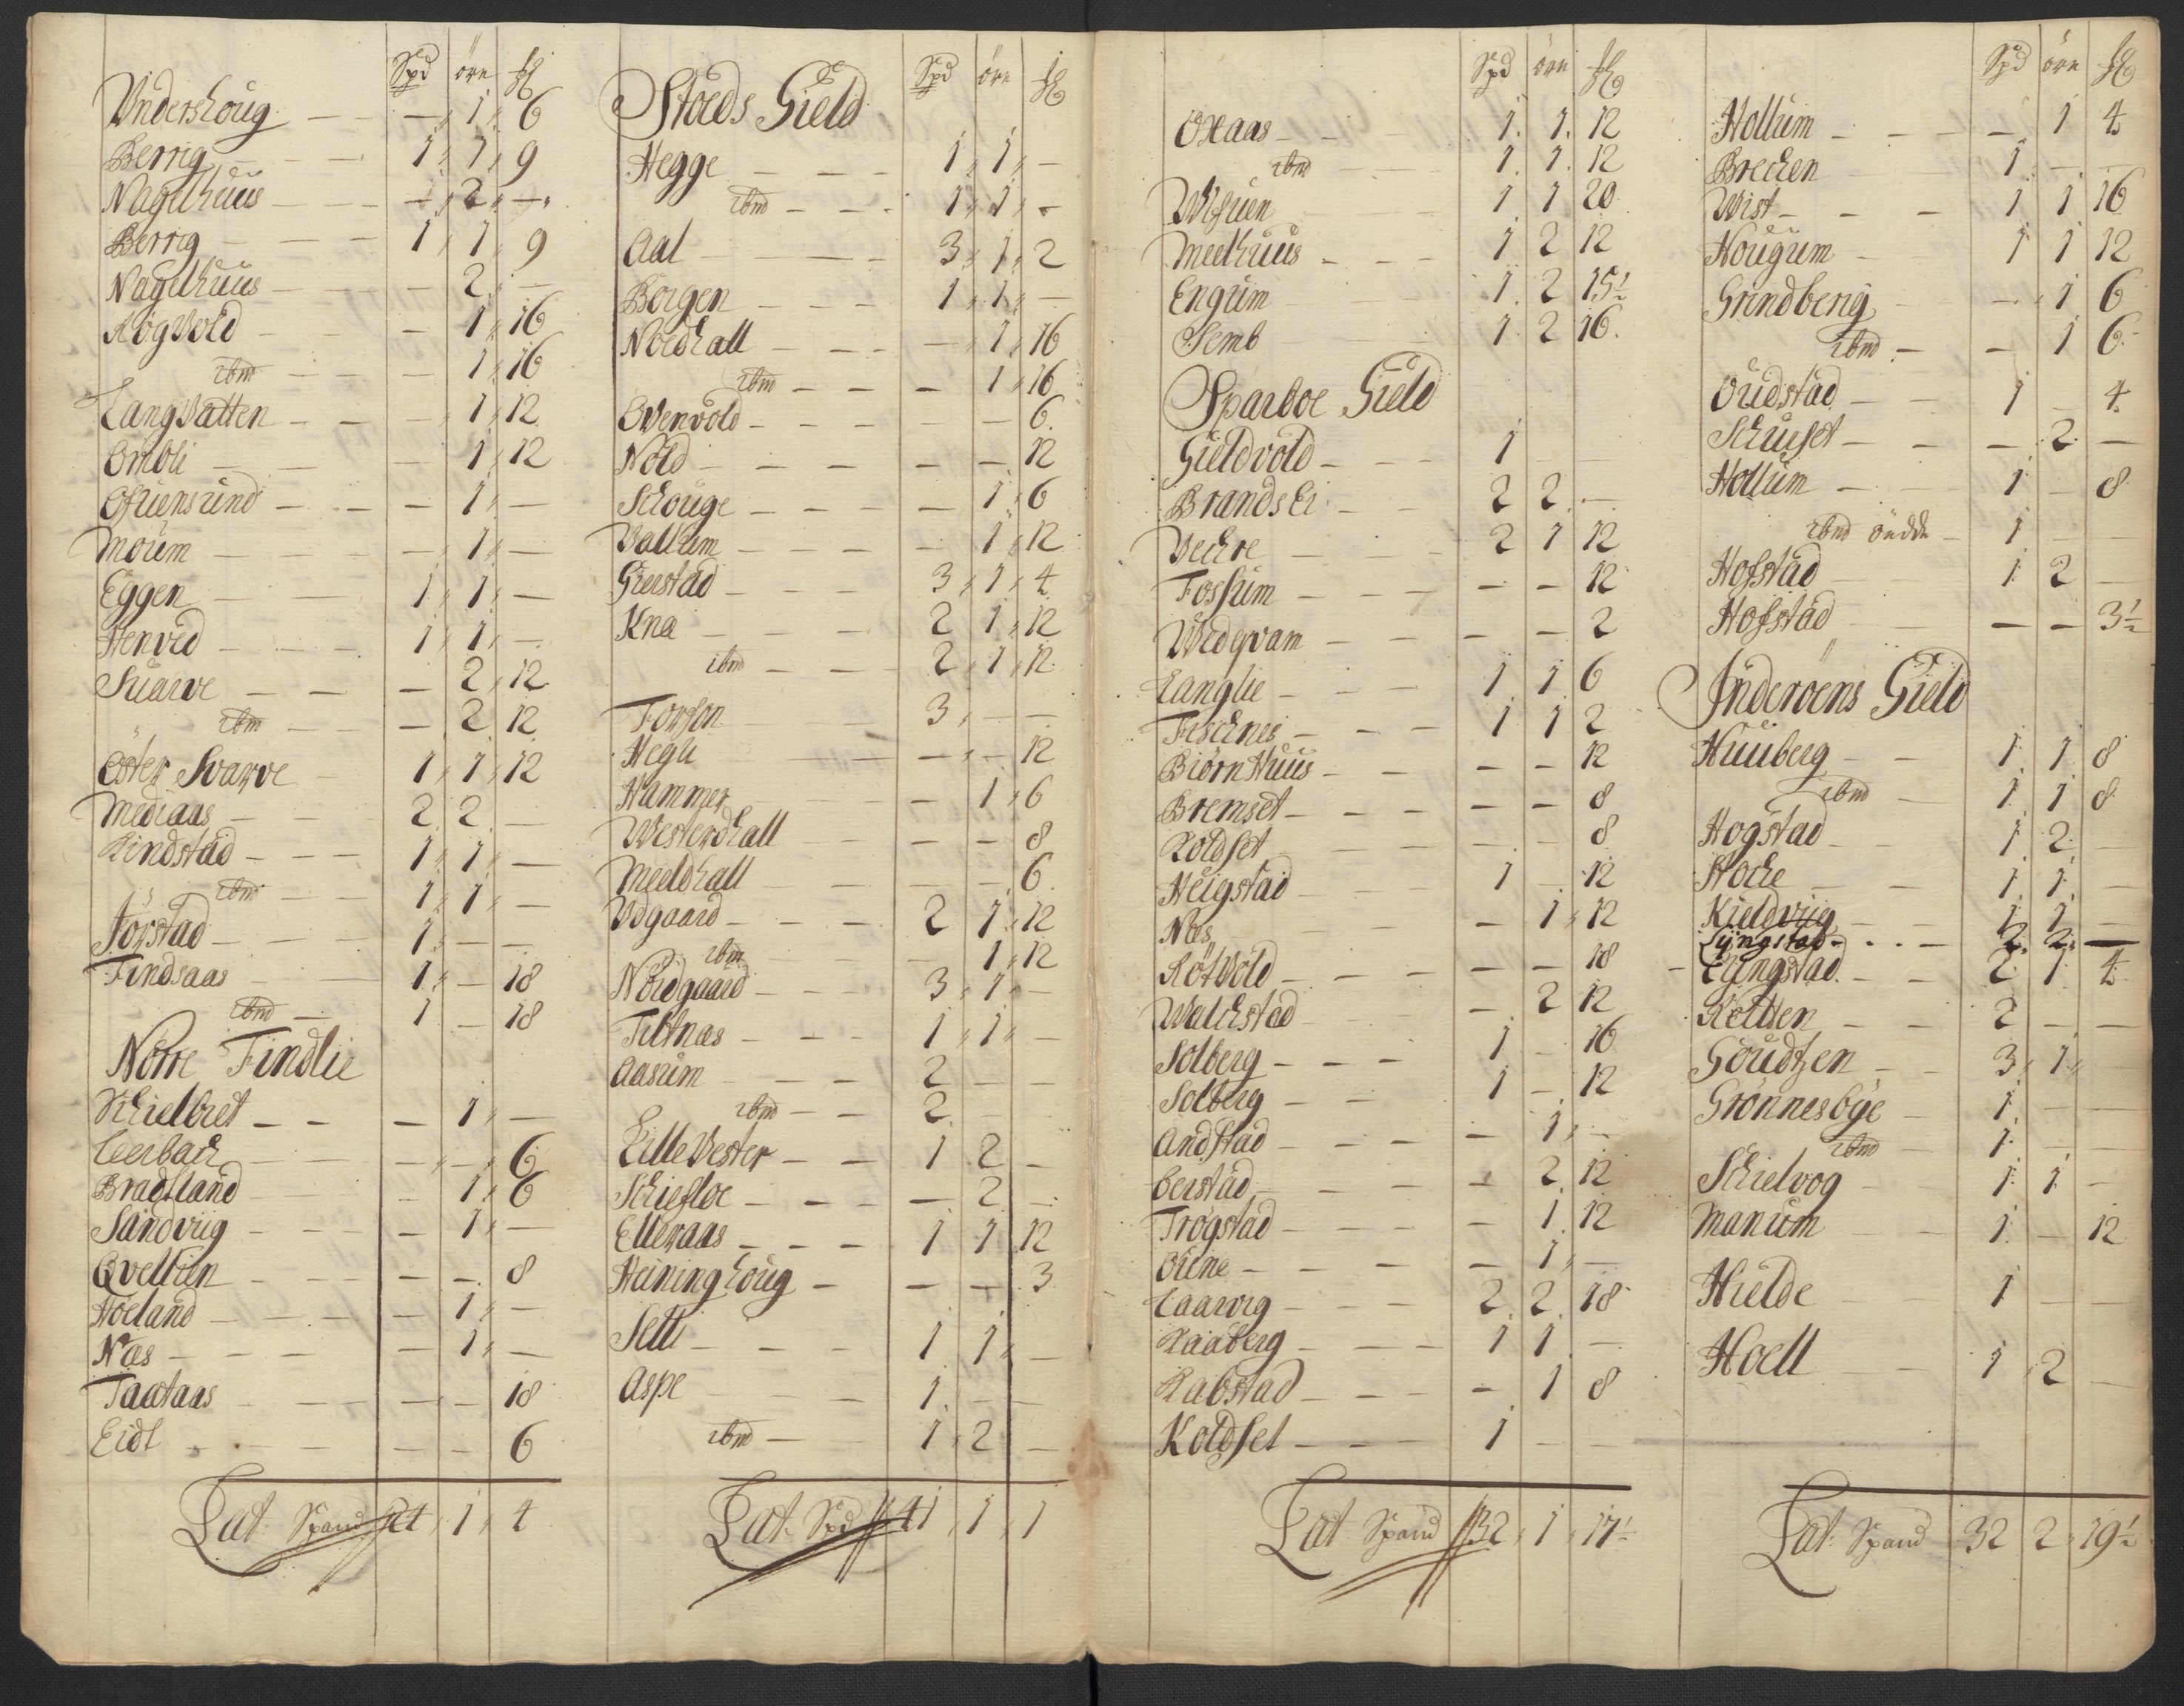 Spd öre
Undershoug — — 1 6
Berrig — 1 1 9
Nagelhuus — — 2 —
Berrig — 1 1 9
Nagelhuus — — 2 —
Rogvold — — 1 16
ibm — — 1 16
Langvatten — — 1 12
Ombli — — 1 12
Ofuensund — — 1 —
Moum — — 1 —
Eggen — 1 1 —
Henvid — 1 1 —
Suarve — — 2 12
ibm — — 2 12
Öster Svarve — 1 1 12
Mediaas — 2 2 —
Rindstad — 1 1 —
ibm — 1 1 —
Jörstad — 1 — —
Findsaas — 1 — 18
ibm — 1 — 18
Nörre Findlie
Schielbret — — 1 —
Leerbach — — — 6
Bradtland — — 1 6
Sandviig — — 1 —
Qvellien — — — 8
Hoeland — — 1 —
Næs — — 1 —
Taataas — — — 18
Eidt — — — 6
Lat. Spand 24 1 4
Spd öre
Stoeds Gield
Hegge — 1 1 —
ibm — 1 1 —
Aal — 3 1 2
Borgen — 1 1 —
Nordhall — — 1 16
ibm — — 1 16
Ovenvold — — — 6
Nold — — — 12
Schouge — — 1 6
Valhum — — 1 12
Gierstad — 3 1 4
Kna — 2 1 12
ibm — 2 1 12
Forson — 3 — —
Hegli — — — 12
Hammer — — 1 6
Westerdhall — — — 8
Meeldhall — — — 6
Udgaard — 2 1 12
ibm — 1 12
Nordgaard — 3 1 —
Tiltnæs — 1 1 —
Aasum — 2 — —
ibm — 2 —
Lille Vester — 1 2 —
Schiefloe — — 2 —
Elleraas — 1 1 12
Heininghoug — — — 3
Selli — 1 1 —
Aspe — 1 — —
ibm — 1 2 —
Lat. Spd 41 1 1
Spd öre
Oxaas — 1 1 12
ibm — 1 1 12
Wisuen 1 1 20
Meelhuus — 1 2 12
Engum 1 2 15½
Semb 1 2 16
Sparboe Gield
Gieldvold — 1
Brands Ei — 2 2 —
Vechre — 2 1 12
Fossum — — — 12
Wedqvam — — — 2
Langlie — 1 1 6
Fischnes — 1 1 2
Biörn Huus — — — 12
Bremset — — — 8
Roldset — — — 8
Heigstad — 1 — 12
Næs — 1 12
Rötvold — — — 18
Walchstad — 2 12
Solberg — 1 — 16
Solberg — 1 — 12
Andstad — — 1 —
Berstad — — 2 12
Trogstad — — 1 12
Öiene — — 1 —
Laarvig — 2 2 18
Raaberg — 1 1 —
Rabstad — — 1 8
Koldset — 1 —
Lat. Spand 32 1 17½
Spd öre
Hollum — — 1 4
Brechen 1 — —
Wist — 1 1 16
Hougum — 1 1 12
Grindberg — 1 6
ibm — — 1 6
Oudstad — 1 — 4
Schuset — — 2 —
Hollum — 1 — 8
ibm — 1 — —
Hofstad 1 2 —
Hofstad — — 3½
Inderöens Gield
Huuberg — 1 1 8
ibm — 1 1 8
Hogstad — 1 2 —
Stoche — 1 1 —
Kieldviig — 1 1 —
Lyngstad — 2 2 —
Lyngstad — 2 1 4
Reitten — 2 — —
Goudtzen — 3 1 —
Grönnesbye — 1 — —
ibm 1 —
Schielvog 1 1 —
Manum — 1 — 12
Hielde 1 — —
Hoell — 1 2 —
Lat. Spand 32 2 19½